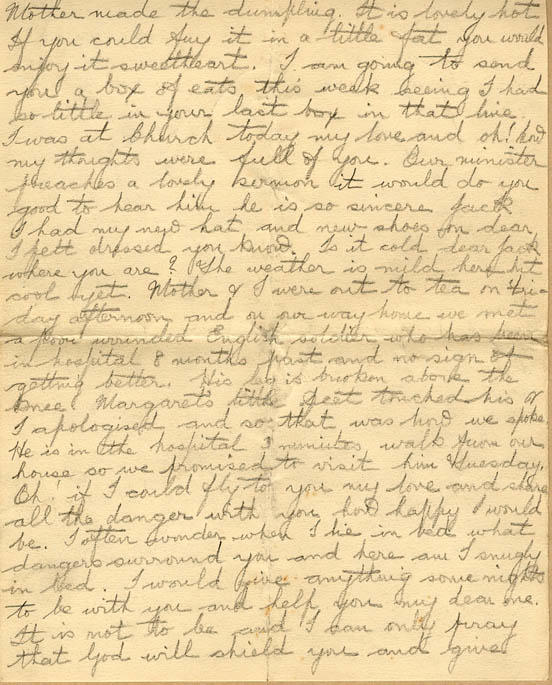 Mother made the dumpling. It is lovely hot
If you could fry it in a little fat you would
enjoy it sweetheart. I am going to send
you a box of eats this week seeing I had
so little in your last box in that line.
I was at Church today my love and oh! how
my thoughts were full of you. Our minister
preaches a lovely sermon it would do you
good to hear him he is so sincere Jack
I had my new hat and new shoes on dear
I felt dressed you know. Is it cold dear Jack
where you are? The weather is mild here but
cool yet. Mother & I were out to tea on Fri-
day afternoon and on our way home we met
a poor wounded English soldier who has been
in hospital 8 months past and no sign of
getting better. His leg is broken above the
knee. Margaret's little feet touched his &
I apologised and so that was how we spoke.
He is in the hospital 3 minutes walk from our
house so we promised to visit him Tuesday.
Oh! if I could fly to you my love and share
all the danger with you how happy I would
be. I often wonder when I lie in bed what
dangers surround you and here am I snugly
in bed. I would give anything some nights
to be with you and help you my dear one.
It is not to be and I can only pray
that God will shield you and give